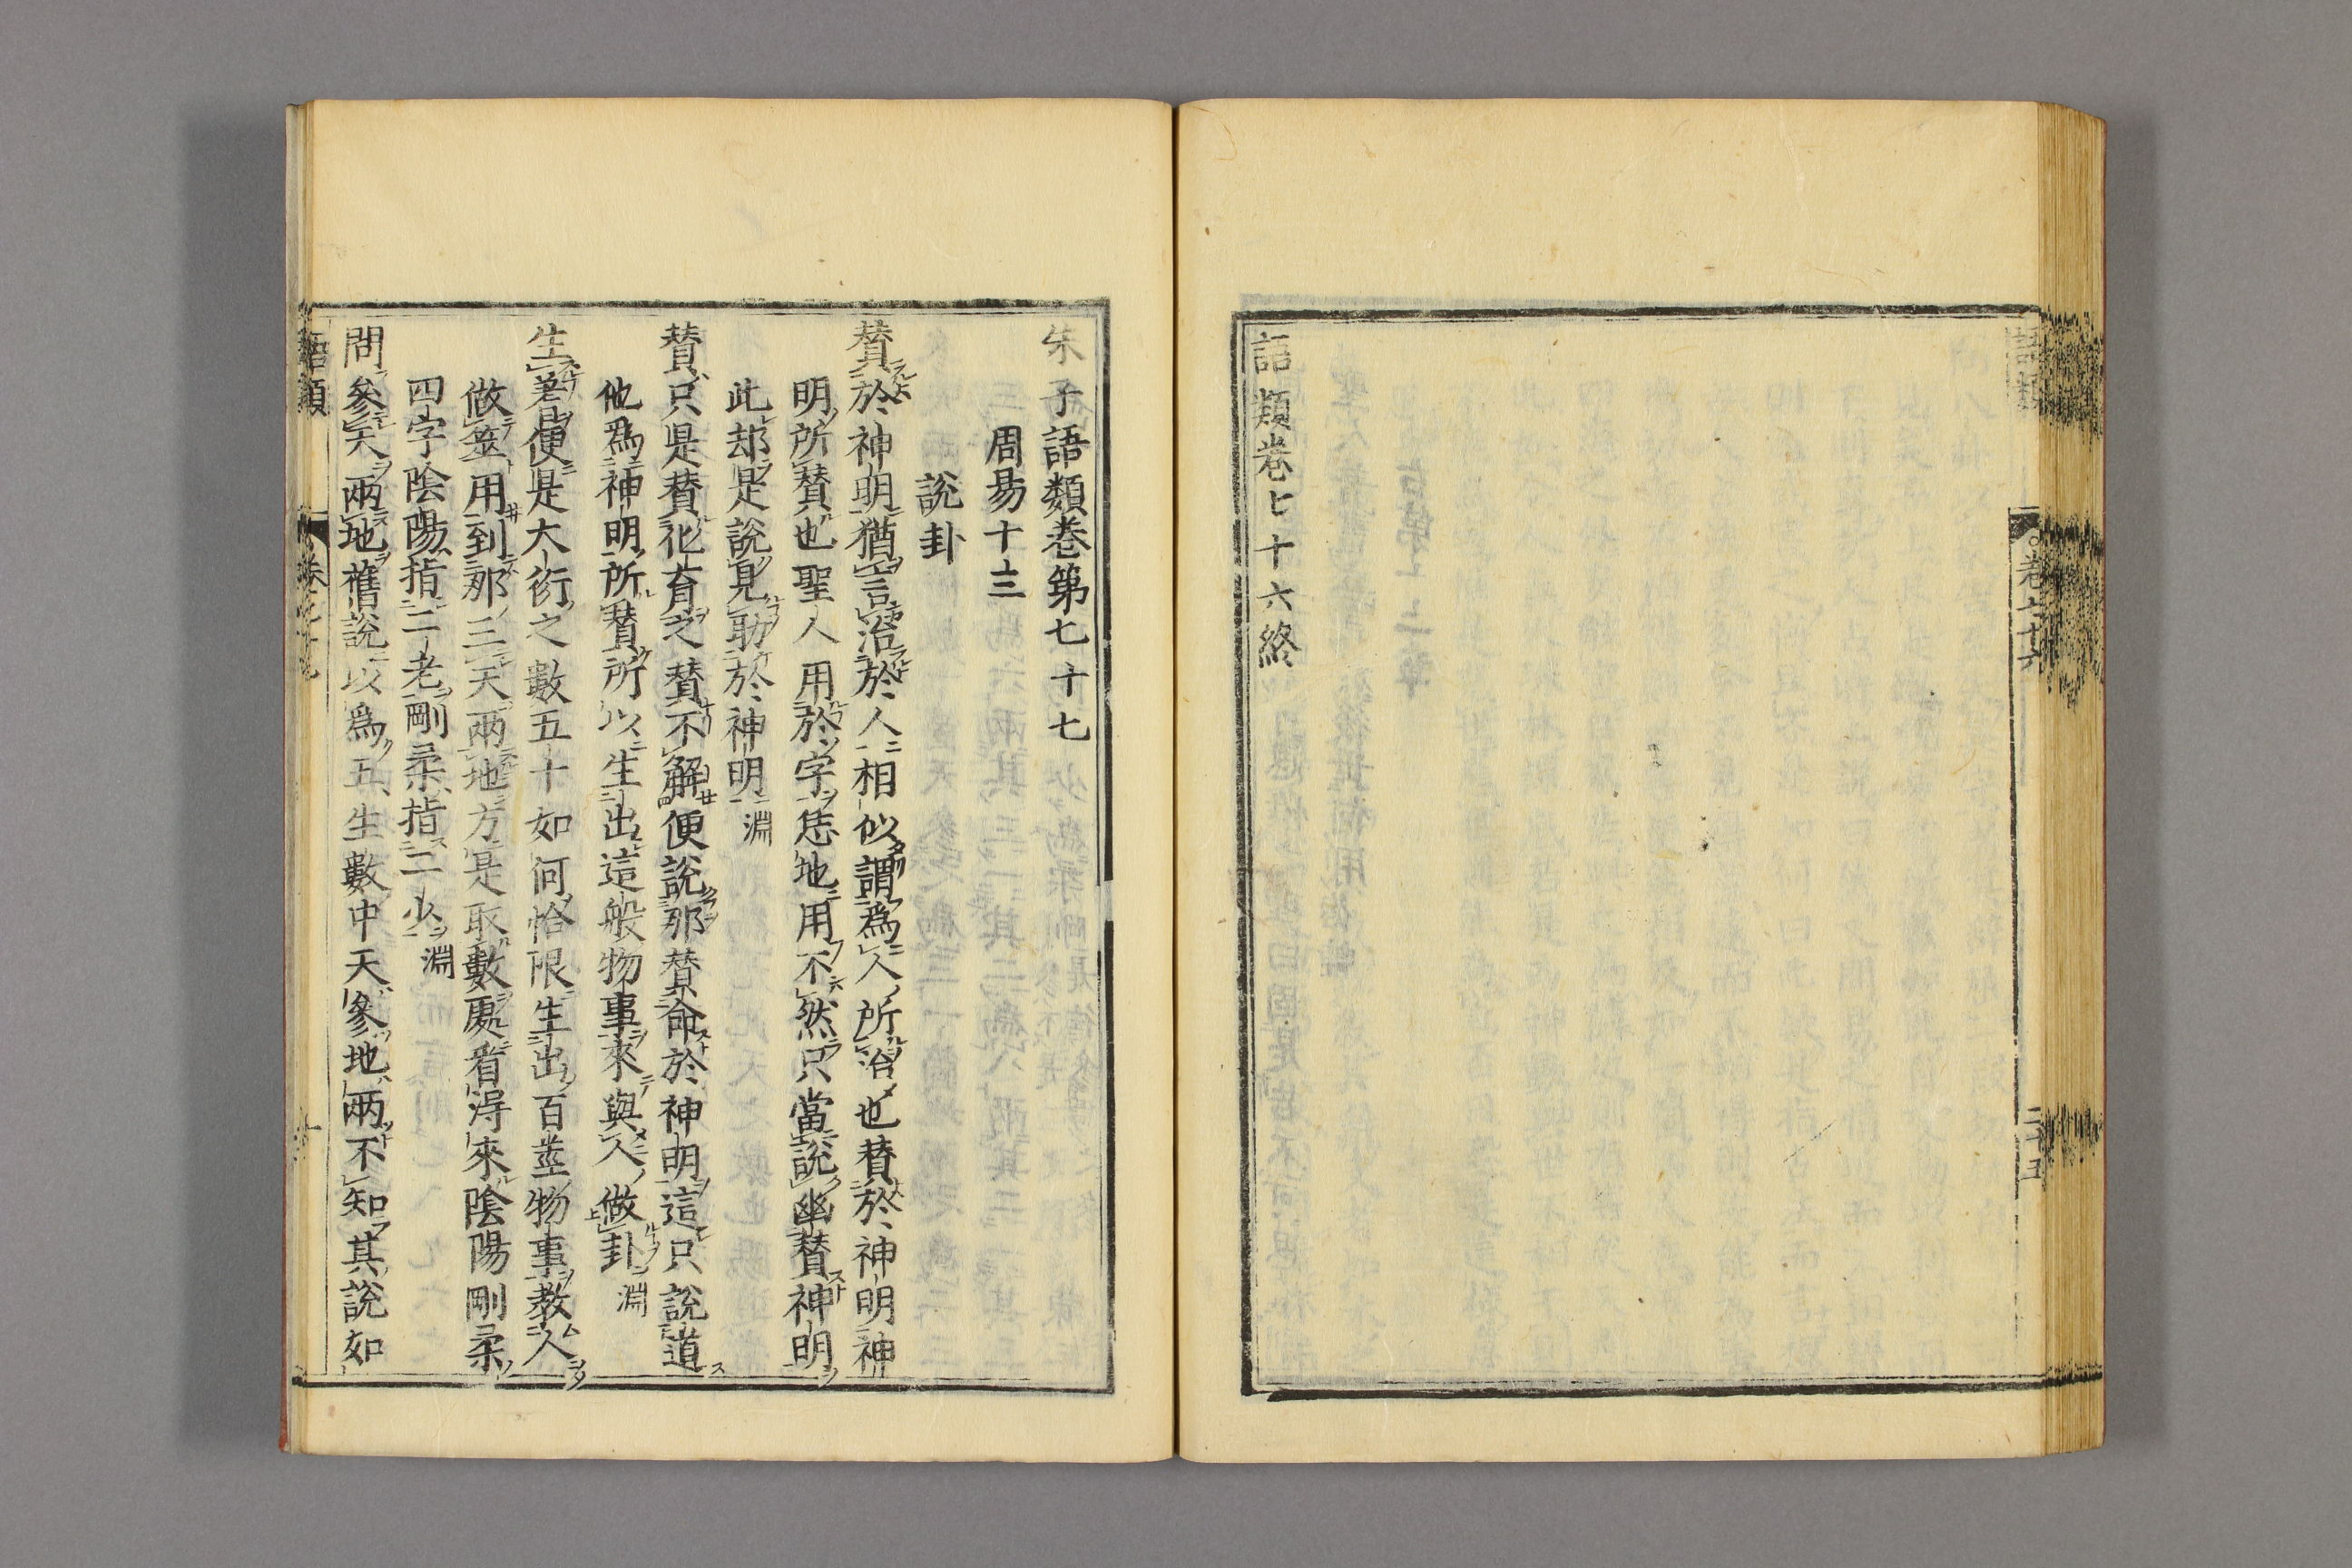 語類卷七十六終
朱子語類卷第七十七
周易十三
說卦
贊於神明猶言治於人相似謂為人所治也贊於神明神
明所贊也聖人用於字恁地用不然只當說幽贊神明
此却是說見助於神明淵
贊只是贊化育之贊不解便說那贊命於神明這只說道
他爲神明所贊所以生出這般物事來與人做卦淵
生蓍便是大衍之數五十如何恰限生出百莖物事教人
做筮用到那三天兩地方是取數處看得來陰陽剛柔
四字陰陽指二老剛柔指二少淵
問參天兩地舊說以爲五生數中天參地兩不知其說如
語類
卷七十六
二十五